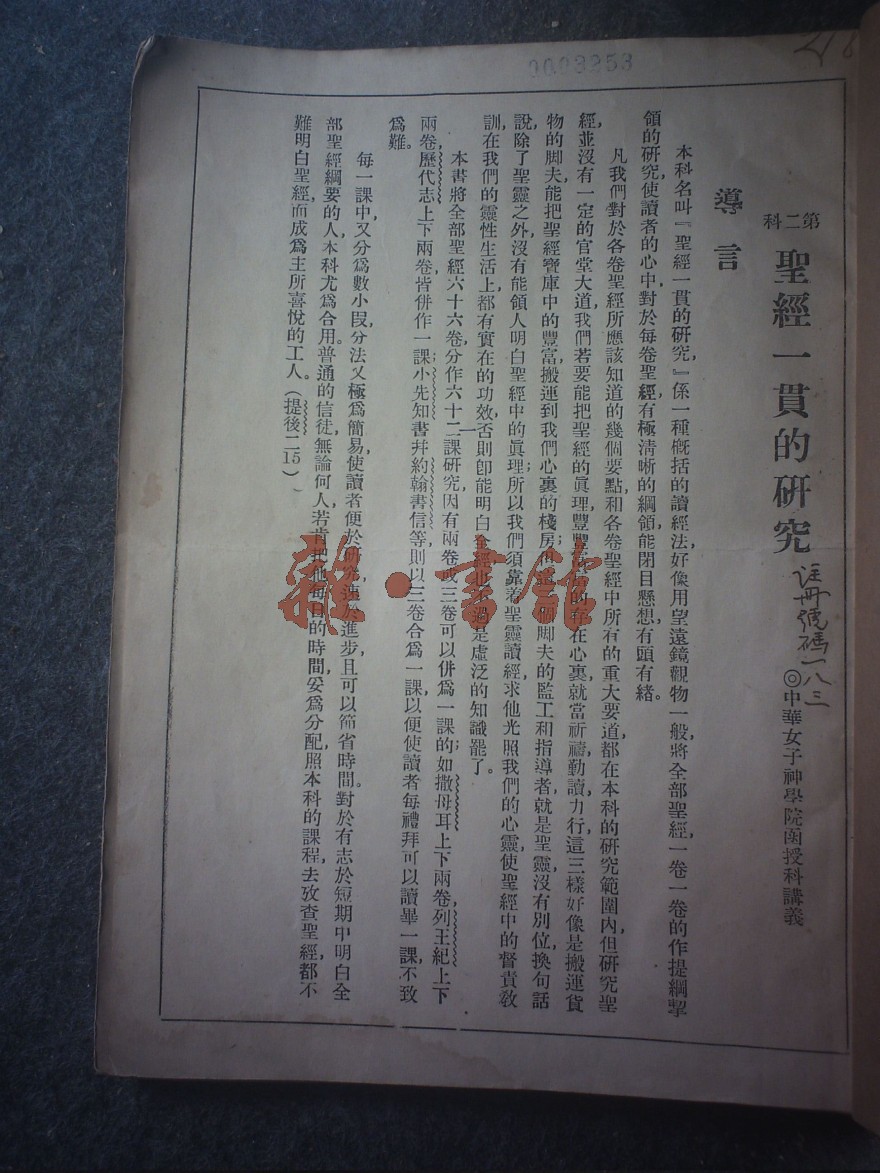 0083253
第二科
聖經一貫的研究
註冊號碼一八三
◎中華女子神學院函授科講義
導言
本科名叫『聖經一貫的研究』係一種概括的讀經法好像用望遠鏡觀物一般,將全部聖經,一卷一卷的作提綱挈
領的研究,使讀者的心中,對於每卷聖經,有極清晰的綱領,能閉目懸想,有頭有緒。
凡我們對於各卷聖經所應該知道的幾個要點,和各卷聖經中所有的重大要道,都在本科的研究範圍內,但研究聖
經,並沒有一定的官堂大道,我們若要能把聖經的真理,豐豐富富的存在心裏,就當祈禱,勤讀,力行,這三樣好像是搬運貨
物的脚夫,能把聖經寶庫中的豐富,搬運到我們心裏的棧房,脚夫的監工和指導者,就是聖靈,沒有別位,換句話
說,除了聖靈之外,沒有能領人明白聖經中的眞理;所以我們須靠着聖靈讀經,求他光照我們的心靈,使聖經中的督責敎
訓,在我們的靈性生活上,都有實在的功效,否則卽能明白全經,也不過是虛泛的知識罷了。
本書將全部聖經六十六卷,分作六十二課研究,因有兩卷或三卷可以併爲一課的;如撒母耳上下兩卷,列王紀上下
兩卷,歷代志上下兩卷,皆併作一課;小先知書幷約翰書信等,則以三卷合爲一課,以便使讀者每禮拜可以讀畢一課,不致
爲難。
每一課中,又分爲數小段,分法又極爲簡易,使讀者便於研究,速於進步,且可以節省時間。對於有志於短期中明白全
部聖經綱要的人,本科尤爲合用。普通的信徒,無論何人,若肯把他每日的時間,妥爲分配,照本科的課程,去攷查聖經,都不
難明白聖經,而成爲主所喜悅的工人。(提後二15)
雜·書館